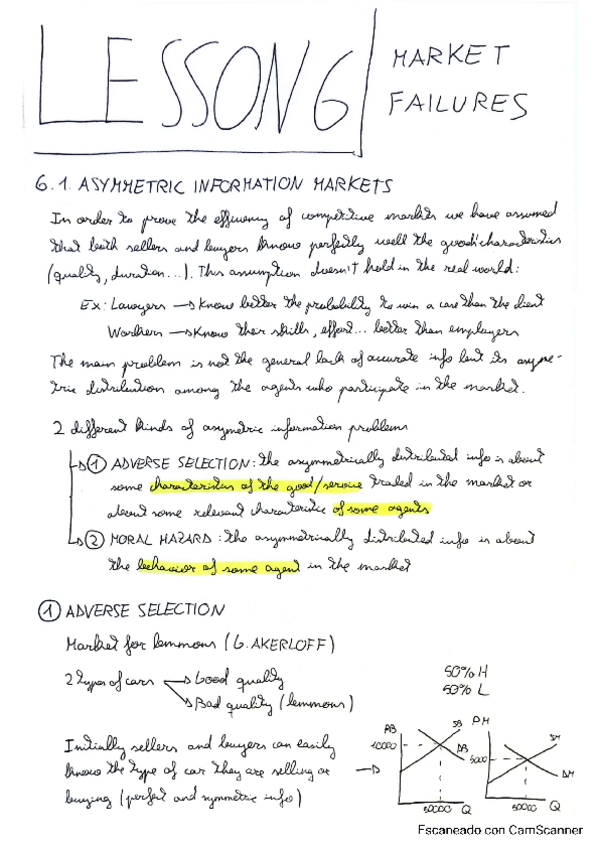 LESSON 6
MARKET
FAILURES
6.1. ASYMMETRIC INFORMATION MARKETS
In order to prove the efficiency of competitive markets we have assumed
that both sellers and buyers know perfectly well the good' characteristics
(quality, duration...). This assumption doesn't hold in the real world:
Ex: Lawyers → Know better the probability to win a case than the client
Workers → Know their skills, effort... better than employers
The main problem is not the general lack of accurate info but its asyme-
tric distribution among the agents who participate in the market.
2 different kinds of asymetric information problems
① ADVERSE SELECTION: the asymmetrically distributed info is about
some characteristics of the good/service traded in the market or
about some relevant characteristic of some agents
② MORAL HAZARD: the asymmetrically distributed info is about
the behavior of some agent in the market
① ADVERSE SELECTION
Market for lemmons (G. AKERLOFF)
2 types of cars → Good quality
→ Bad quality (lemmons)
50% H
50% L
Initially sellers and buyers can easily
know the type of car they are selling or
buying (perfect and symmetric info)
10000
50000 Q
PM
SM
5000
DM
50000 Q
Escaneado con CamScanner